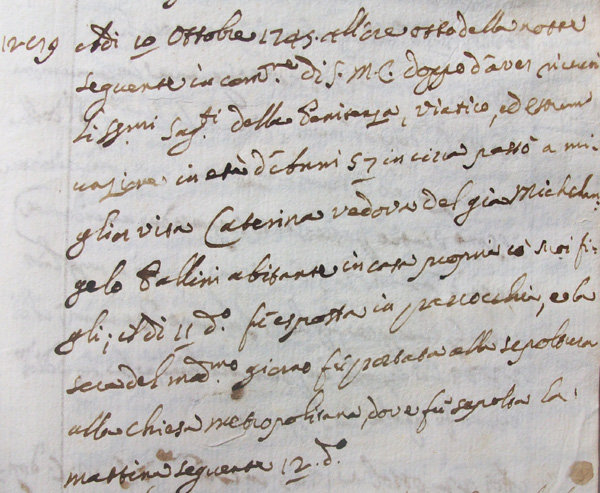 Adi 10 Ottobre 1745. all'ore otto della notte
seguente in com.ne di S. M. C. doppo d'aver ricevuti
li SS.mi Sag.ti della Penitenza, Viatico, ed Estrem
unzione in età d'Anni 57 in circa passò a mi-
glior vita Caterina vedova del già Michelan-
gelo Fallini abitante in casa propria co' suoi fi-
gli; Adi 11 d.o fù esposta in parocchia, e la
sera del mad.mo giorno fù portata alla sepoltura
alla Chiesa metropolitana, dove fù sepolta la
mattina seguente 12. d.o